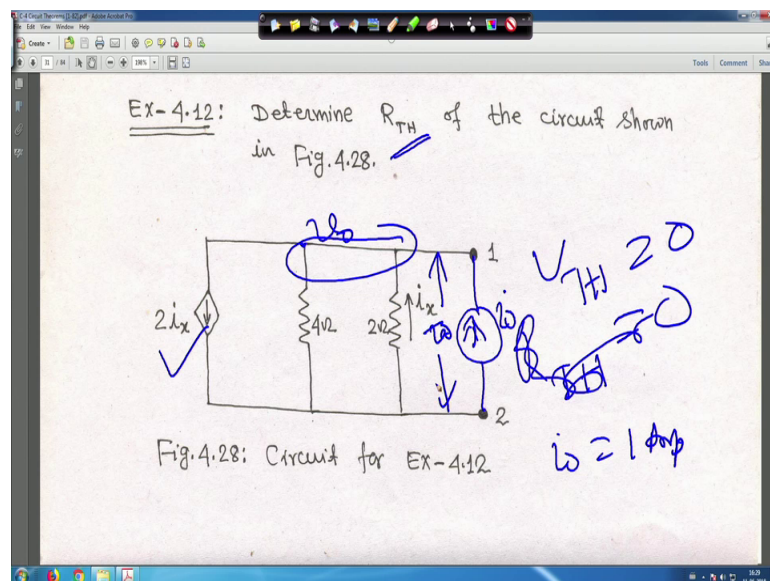 C-4 Circuit Theorems [1-82].pdf - Adobe Acrobat Pro
File Edit View Window Help
Create
31 / 84 198% Tools Comment Share
Ex-4.12: Determine R_TH of the circuit shown
in Fig.4.28.
v₀
1
V_TH = 0
2iₓ
4Ω
2Ω
iₓ
v₀
i₀
R_TH = 0
2
i₀ = 1 Amp
Fig.4.28: Circuit for Ex-4.12
16:29